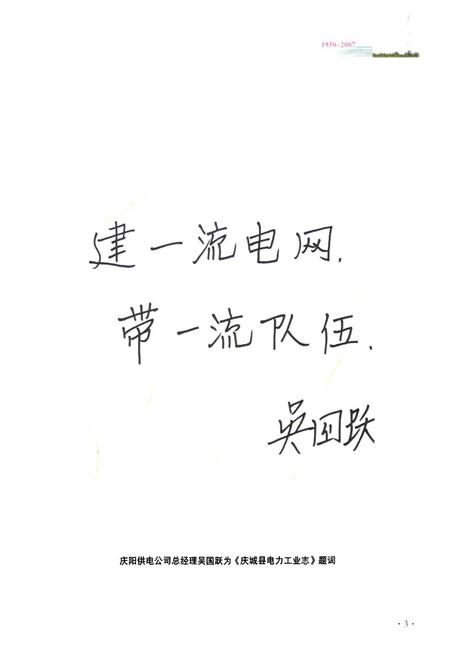 1950-2007
建一流电网.
带一流队伍.
吴国跃
庆阳供电公司总经理吴国跃为《庆城县电力工业志》题词
·3·